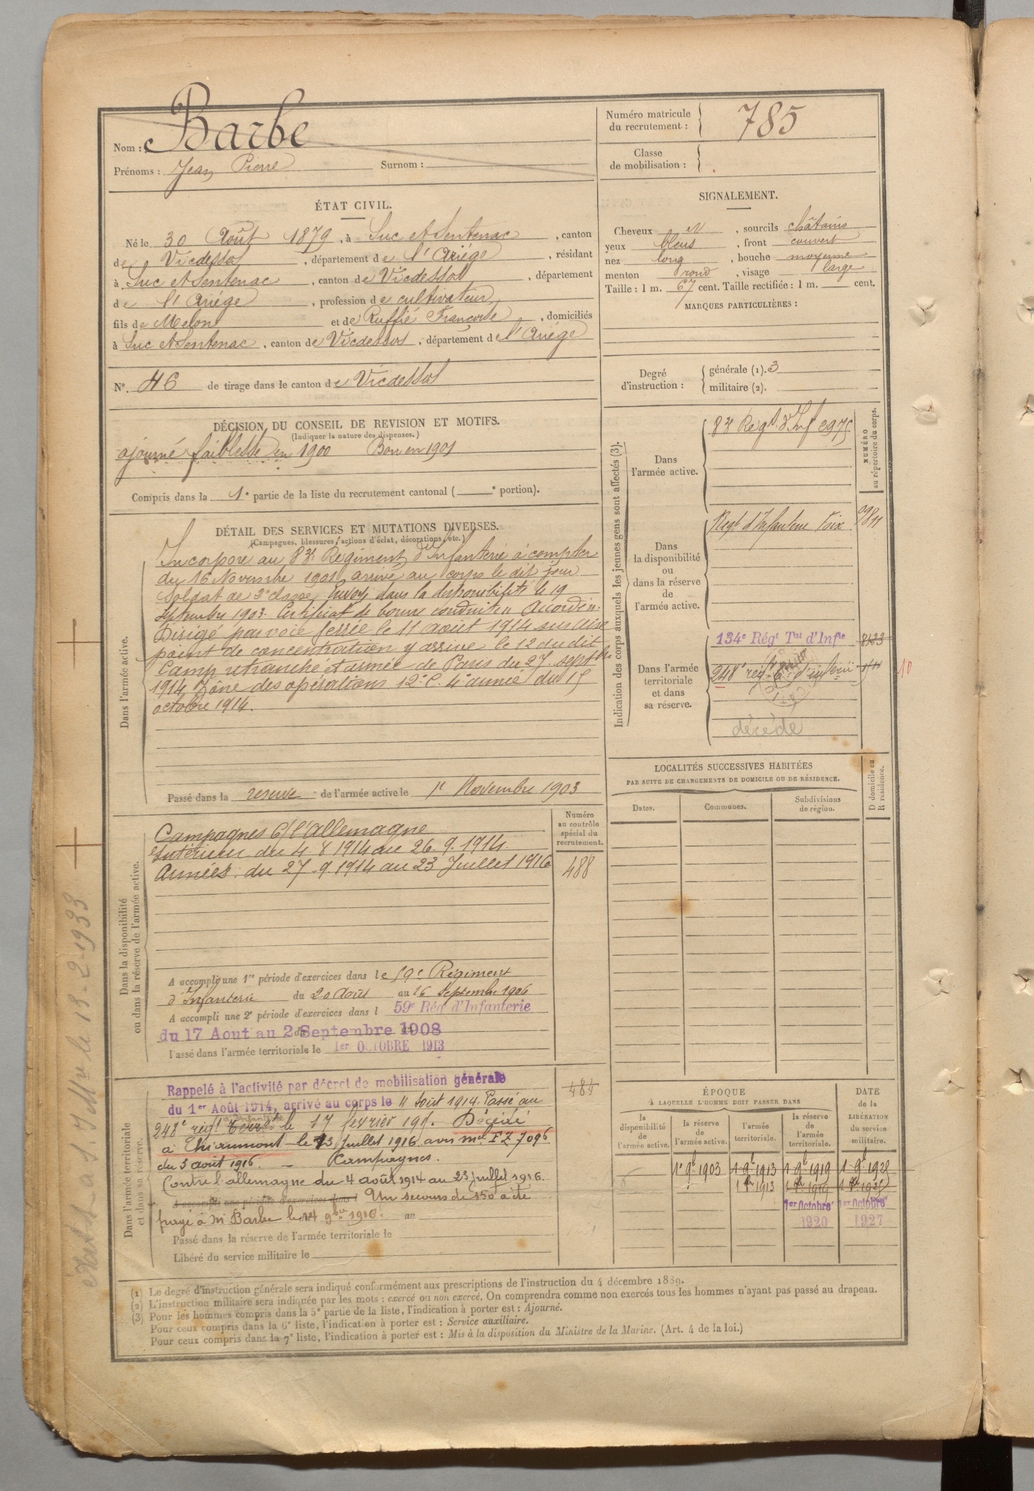 Nom : Barbe
Prénoms : Jean Pierre Surnom :
Numéro matricule
du recrutement : 785
Classe
de mobilisation :
ÉTAT CIVIL.
Né le 30 Août 1879, à Suc et Sentenac, canton
de Vicdessos, département de l'Ariège, résidant
à Suc et Sentenac, canton de Vicdessos, département
de l'Ariège, profession de cultivateur,
fils de Melon et de Ruffié Françoise, domiciliés
à Suc et Sentenac, canton de Vicdessos, département de l'Ariège
N° 46 de tirage dans le canton de Vicdessos
SIGNALEMENT.
Cheveux N, sourcils châtains
yeux bleus, front couvert
nez long, bouche moyenne
menton rond, visage large
Taille : 1 m. 67 cent. Taille rectifiée : 1 m. cent.
MARQUES PARTICULIÈRES :
Degré
d'instruction :
générale (1). 3
militaire (2).
DÉCISION DU CONSEIL DE REVISION ET MOTIFS.
(Indiquer la nature des dispenses.)
ajourné faiblesse en 1900 Bon en 1901
Compris dans la 1e partie de la liste du recrutement cantonal ( e portion).
DÉTAIL DES SERVICES ET MUTATIONS DIVERSES.
(Campagnes, blessures, actions d'éclat, décorations, etc.)
Dans l'armée active.
Incorporé au 83e Régiment d'Infanterie à compter
du 16 Novembre 1901, arrivé au corps le dit jour
Soldat de 2e classe. Envoyé dans la disponibilité le 19
Septembre 1903. Certificat de bonne conduite "Accordé".
Dirigé par voie ferrée le 11 août 1914 sur
point de concentration y arrivé le 12 du dit
Camp retranché et armée de Paris du 27 septbre
1914 Zone des opérations 12e C. 4e année du 15
octobre 1914.
Passé dans la réserve de l'armée active le 1er Novembre 1903
Indication des corps auxquels les jeunes gens sont affectés (3).
NUMÉRO
au répertoire du corps.
Dans
l'armée active.
83e Régt d'Inf
Dans
la disponibilité
ou
dans la réserve
de
l'armée active.
Régt d'Infanterie Foix
Dans l'armée
territoriale
et dans
sa réserve.
134e Régt Tal d'Infie
248e rég
décédé
LOCALITÉS SUCCESSIVES HABITÉES
PAR SUITE DE CHANGEMENTS DE DOMICILE OU DE RÉSIDENCE.
Dates.
Communes.
Subdivisions
de région.
D domicile ou
R résidence.
Dans la disponibilité
ou dans la réserve de l'armée active.
Numéro
au contrôle
spécial du
recrutement.
488
Campagnes C/ l'Allemagne
Intérieur du 4.8 1914 au 26.9.1914
Armées. du 27.9 1914 au 23 Juillet 1916
A accompli une 1re période d'exercices dans le 59e Régiment
d'Infanterie du 20 Août au 16 Septembre 1906
A accompli une 2e période d'exercices dans l 59e Rég d'Infanterie
du 17 Aout au 2 Septembre 1908
Passé dans l'armée territoriale le 1er OCTOBRE 1913
Dans l'armée territoriale
et dans sa réserve.
484
Rappelé à l'activité par décret de mobilisation générale
du 1er Août 1914, arrivé au corps le 4 Août 1914. Passé au
248e régt le 17 février 191 . Décédé
à Thiaumont le 23 Juillet 1916 avis ml FZ 7096
du 3 août 1916 — Campagnes.
Contre l'allemagne du 4 août 1914 au 23 juillet 1916.
Un secours de 150 a été
payé à Me Barbe le 14 9bre 1916.
Passé dans la réserve de l'armée territoriale le
Libéré du service militaire le
ÉPOQUE
À LAQUELLE L'HOMME DOIT PASSER DANS
DATE
de la
LIBÉRATION
du service
militaire.
la
disponibilité
de
l'armée active.
la réserve
de
l'armée active.
l'armée
territoriale.
la réserve
de
l'armée
territoriale.
1er 9bre 1903 1 9bre 1913 1 9bre 1919 1 9bre 1928
1 8bre 1913
1er Octobre 1er Octobre
1920 1927
(1) Le degré d'instruction générale sera indiqué conformément aux prescriptions de l'instruction du 4 décembre 1889.
(2) L'instruction militaire sera indiquée par les mots : exercé ou non exercé. On comprendra comme non exercés tous les hommes n'ayant pas passé au drapeau.
(3) Pour les hommes compris dans la 5e partie de la liste, l'indication à porter est : Ajourné.
Pour ceux compris dans la 6e liste, l'indication à porter est : Service auxiliaire.
Pour ceux compris dans la 7e liste, l'indication à porter est : Mis à la disposition du Ministre de la Marine. (Art. 4 de la loi.)
le 13-2-1933